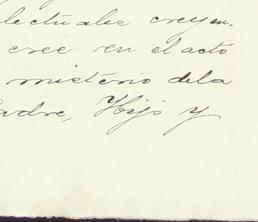 lectuales creyen.
cree en el acto
misterio de la
adre, Hijo y